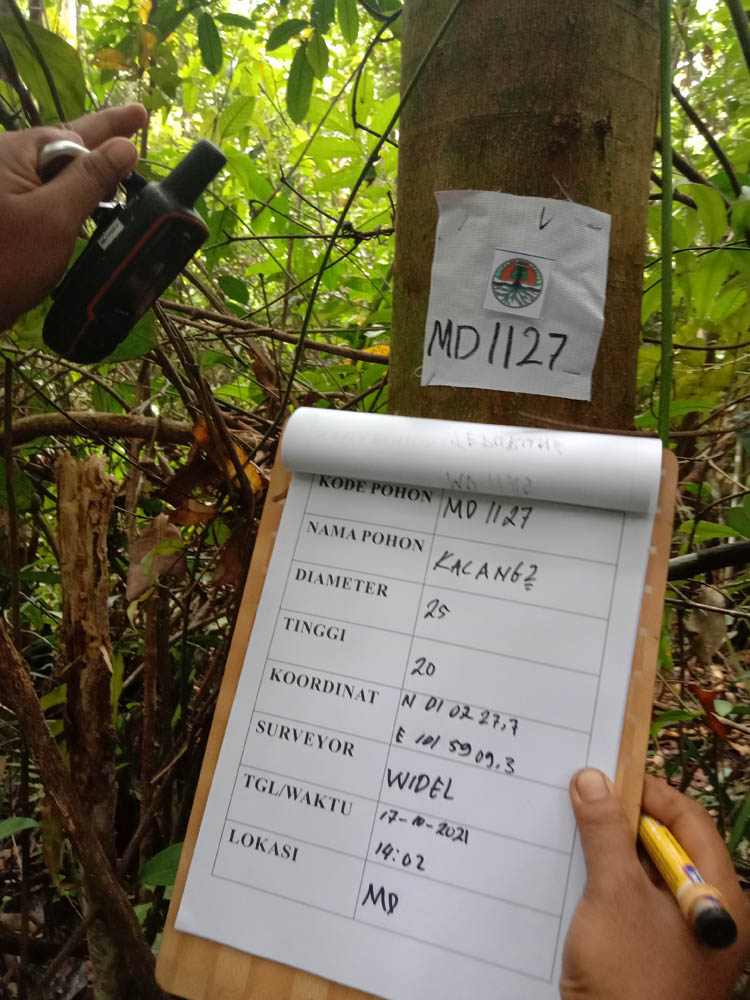 MD1127
KODE POHON MD 1127
NAMA POHON KALANG2
DIAMETER 25
TINGGI 20
KOORDINAT N 01 02 27,7
E 101 59 09.3
SURVEYOR WIDEL
TGL/WAKTU 17-10-2021
14:02
LOKASI MD